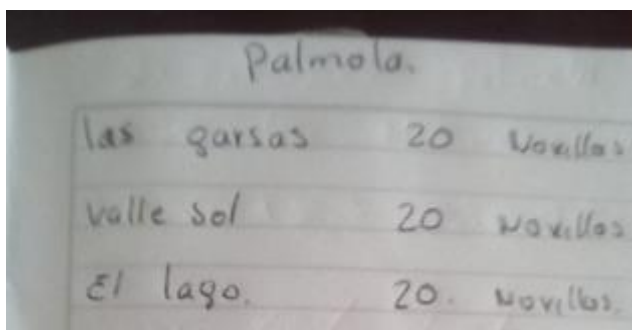 Palmola.
las garsas 20 Novillos
valle sol 20 Novillos
El lago. 20. Novillos.